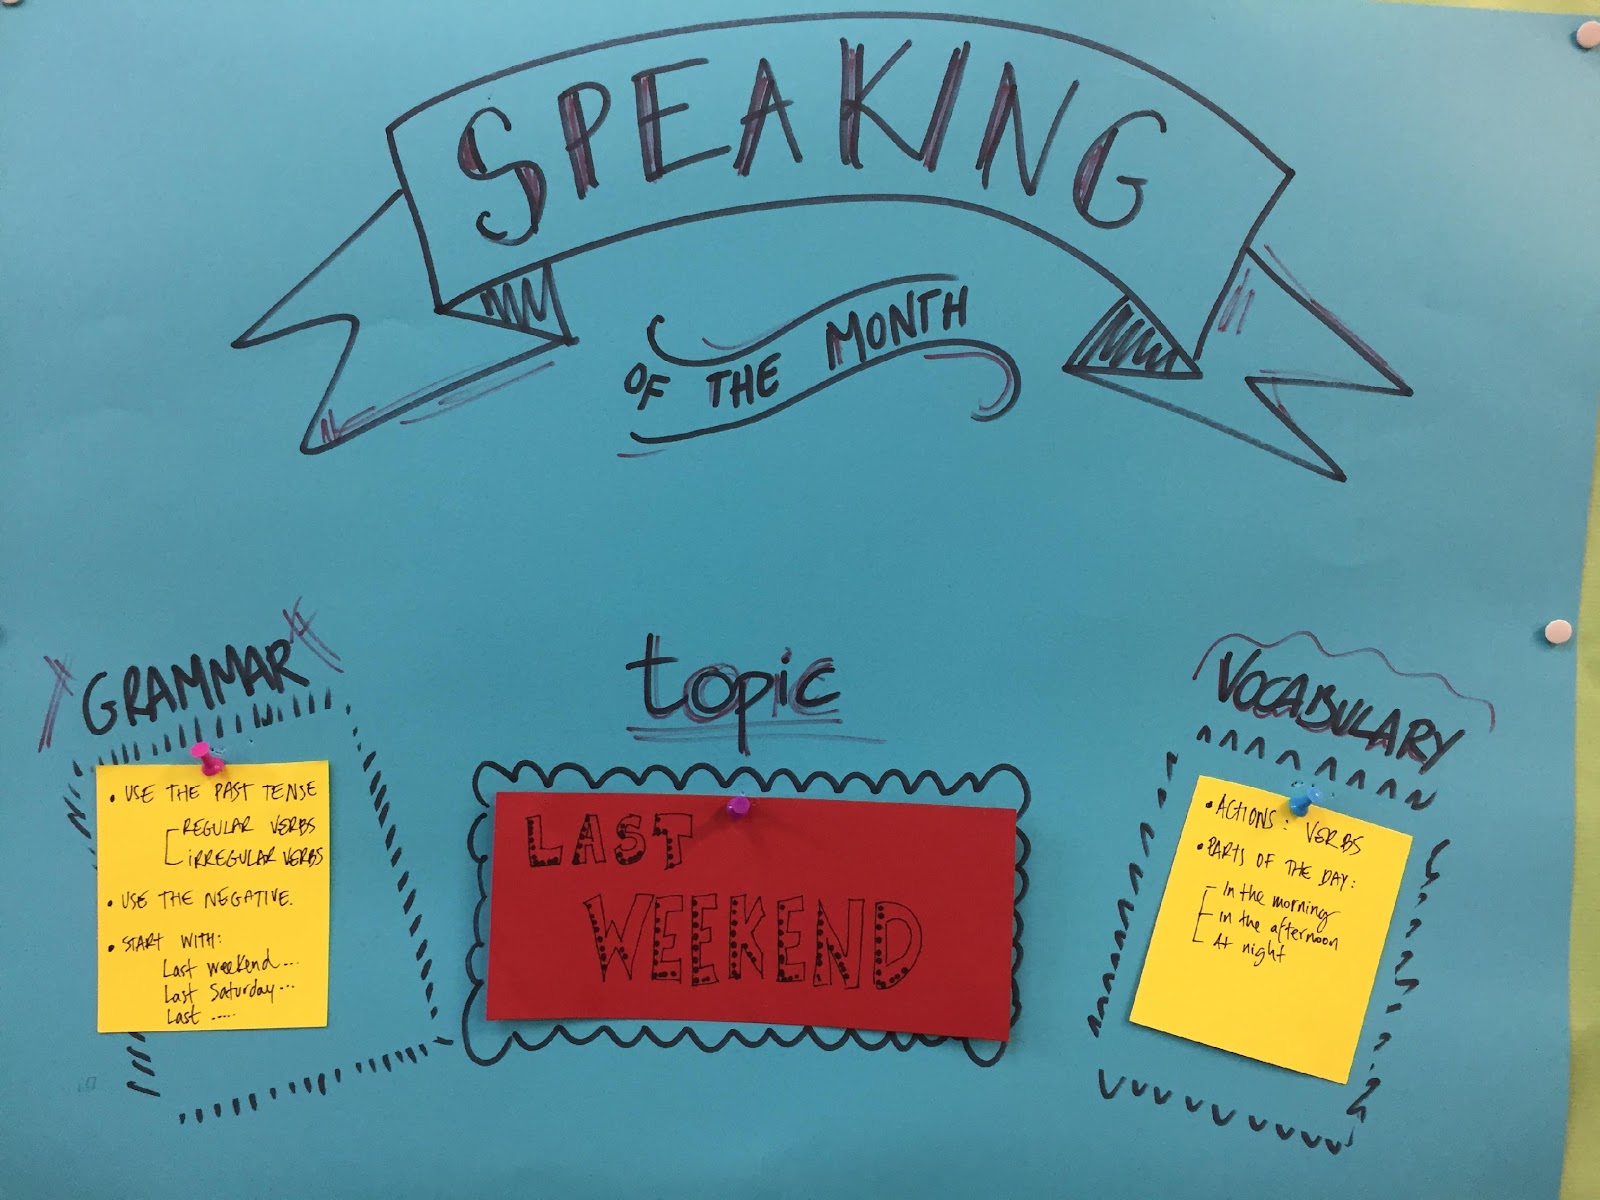 SPEAKING
OF THE MONTH
GRAMMAR
• USE THE PAST TENSE
REGULAR VERBS
IRREGULAR VERBS
• USE THE NEGATIVE.
• START WITH:
Last weekend...
Last Saturday...
Last .....
topic
LAST
WEEKEND
VOCABULARY
• ACTIONS: VERBS
• PARTS OF THE DAY:
In the morning
in the afternoon
At night